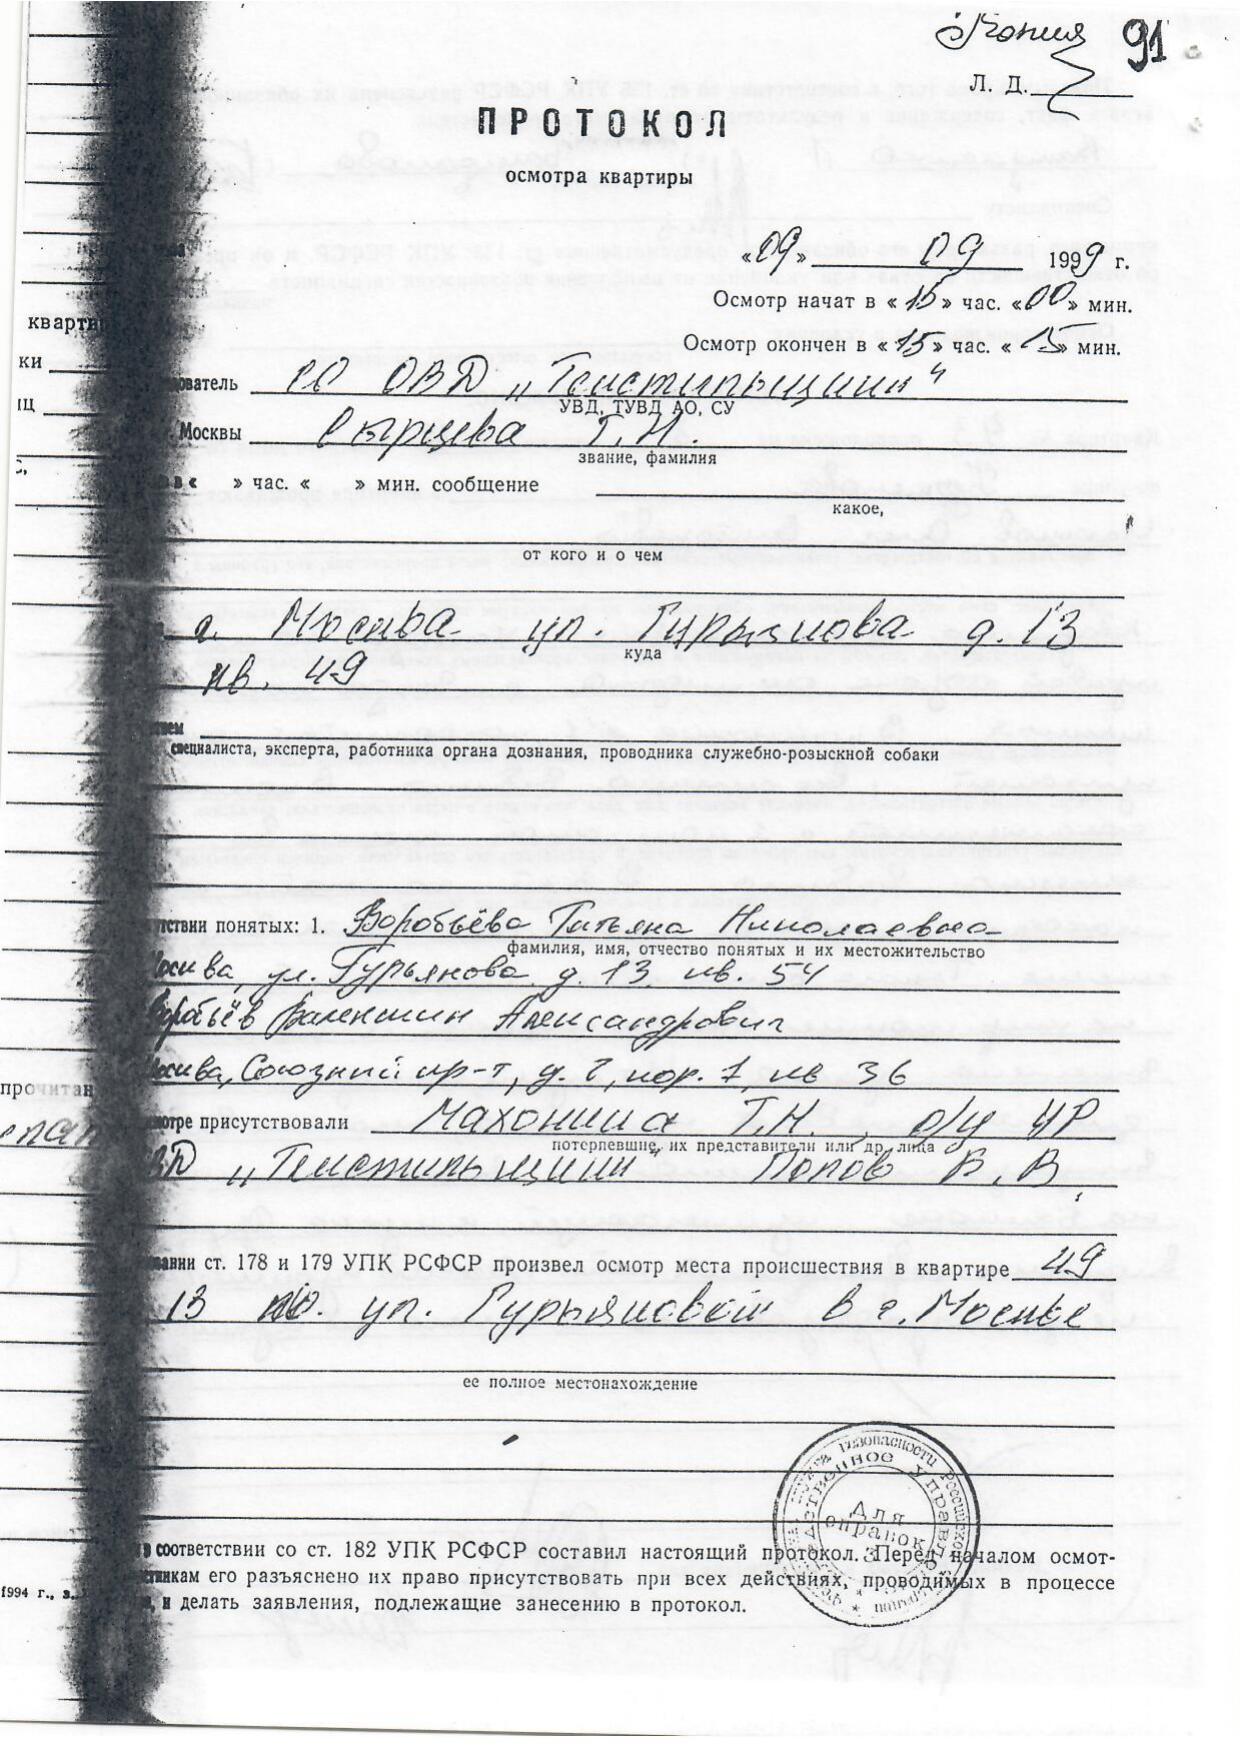 Копия 91
Л. Д.
ПРОТОКОЛ
осмотра квартиры
«09» 09 1999 г.
Осмотр начат в «15» час. «00» мин.
кварти
Осмотр окончен в «15» час. «15» мин.
ки
ователь СО ОВД „Текстильщики“
УВД, ТУВД АО, СУ
Москвы Сырцева Т.Н.
звание, фамилия
в « » час. « » мин. сообщение
какое,
от кого и о чем
г. Москва ул. Гурьянова д. 13
куда
кв. 49
ием
специалиста, эксперта, работника органа дознания, проводника служебно-розыскной собаки
тствии понятых: 1. Воробьёва Татьяна Николаевна
фамилия, имя, отчество понятых и их местожительство
Москва, ул. Гурьянова д. 13 кв. 54
Воробьёв Валентин Александрович
Москва, Союзный пр-т, д. 2, кор. 1, кв 36
прочитан
смотре присутствовали Махонина Т.Н., о/у УР
потерпевшие, их представители или др. лица
ОВД „Текстильщики“ Попов В.В
овании ст. 178 и 179 УПК РСФСР произвел осмотр места происшествия в квартире 49
13 по ул. Гурьяновой в г. Москве
ее полное местонахождение
Служба Безопасности Российской
Следственное Управление
Для
справок
3
в соответствии со ст. 182 УПК РСФСР составил настоящий протокол. Перед началом осмот-
стникам его разъяснено их право присутствовать при всех действиях, проводимых в процессе
1994 г., з.
и делать заявления, подлежащие занесению в протокол.